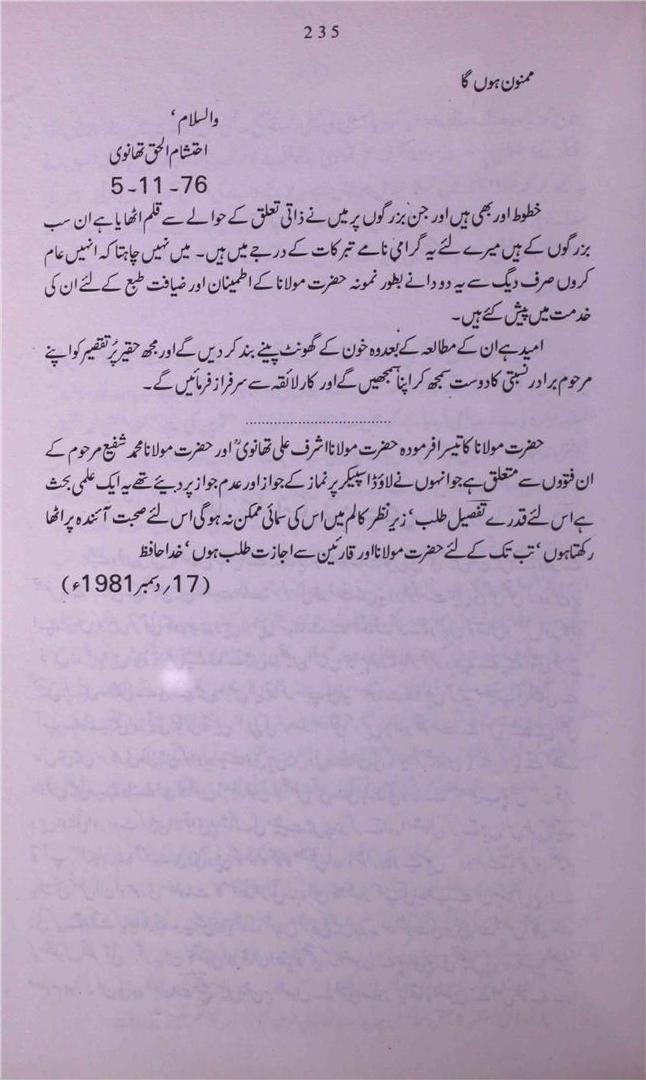 235
ممنون ہوں گا
والسلام ‘
احتشام الحق تھانوی
5-11-76
خطوط اور بھی ہیں اور جن بزرگوں پر میں نے ذاتی تعلق کے حوالے سے قلم اٹھایا ہے ان سب
بزرگوں کے ہیں میرے لئے یہ گرامی نامے تبرکات کے درجے میں ہیں۔ میں نہیں چاہتا کہ انہیں عام
کروں صرف دیگ سے یہ دو دانے بطور نمونہ حضرت مولانا کے اطمینان اور ضیافت طبع کے لئے ان کی
خدمت میں پیش کئے ہیں۔
امید ہے ان کے مطالعہ کے بعد وہ خون کے گھونٹ پینے بند کر دیں گے اور مجھ حقیر پُر تقصیر کو اپنے
مرحوم برادر نسبتی کا دوست سمجھ کر اپنا سمجھیں گے اور کار لائقہ سے سرفراز فرمائیں گے۔
........................................
حضرت مولانا کا تیسرا فرمودہ حضرت مولانا اشرف علی تھانویؒ اور حضرت مولانا محمد شفیع مرحوم کے
ان فتووں سے متعلق ہے جو انہوں نے لاؤڈ اسپیکر پر نماز کے جواز اور عدم جواز پر دیئے تھے یہ ایک علمی بحث
ہے اس لئے قدرے تفصیل طلب ‘ زیر نظر کالم میں اس کی سمائی ممکن نہ ہوگی اس لئے صحبت آئندہ پر اٹھا
رکھتا ہوں ‘ تب تک کے لئے حضرت مولانا اور قارئین سے اجازت طلب ہوں ‘ خدا حافظ
(17 ؍ دسمبر 1981ء)